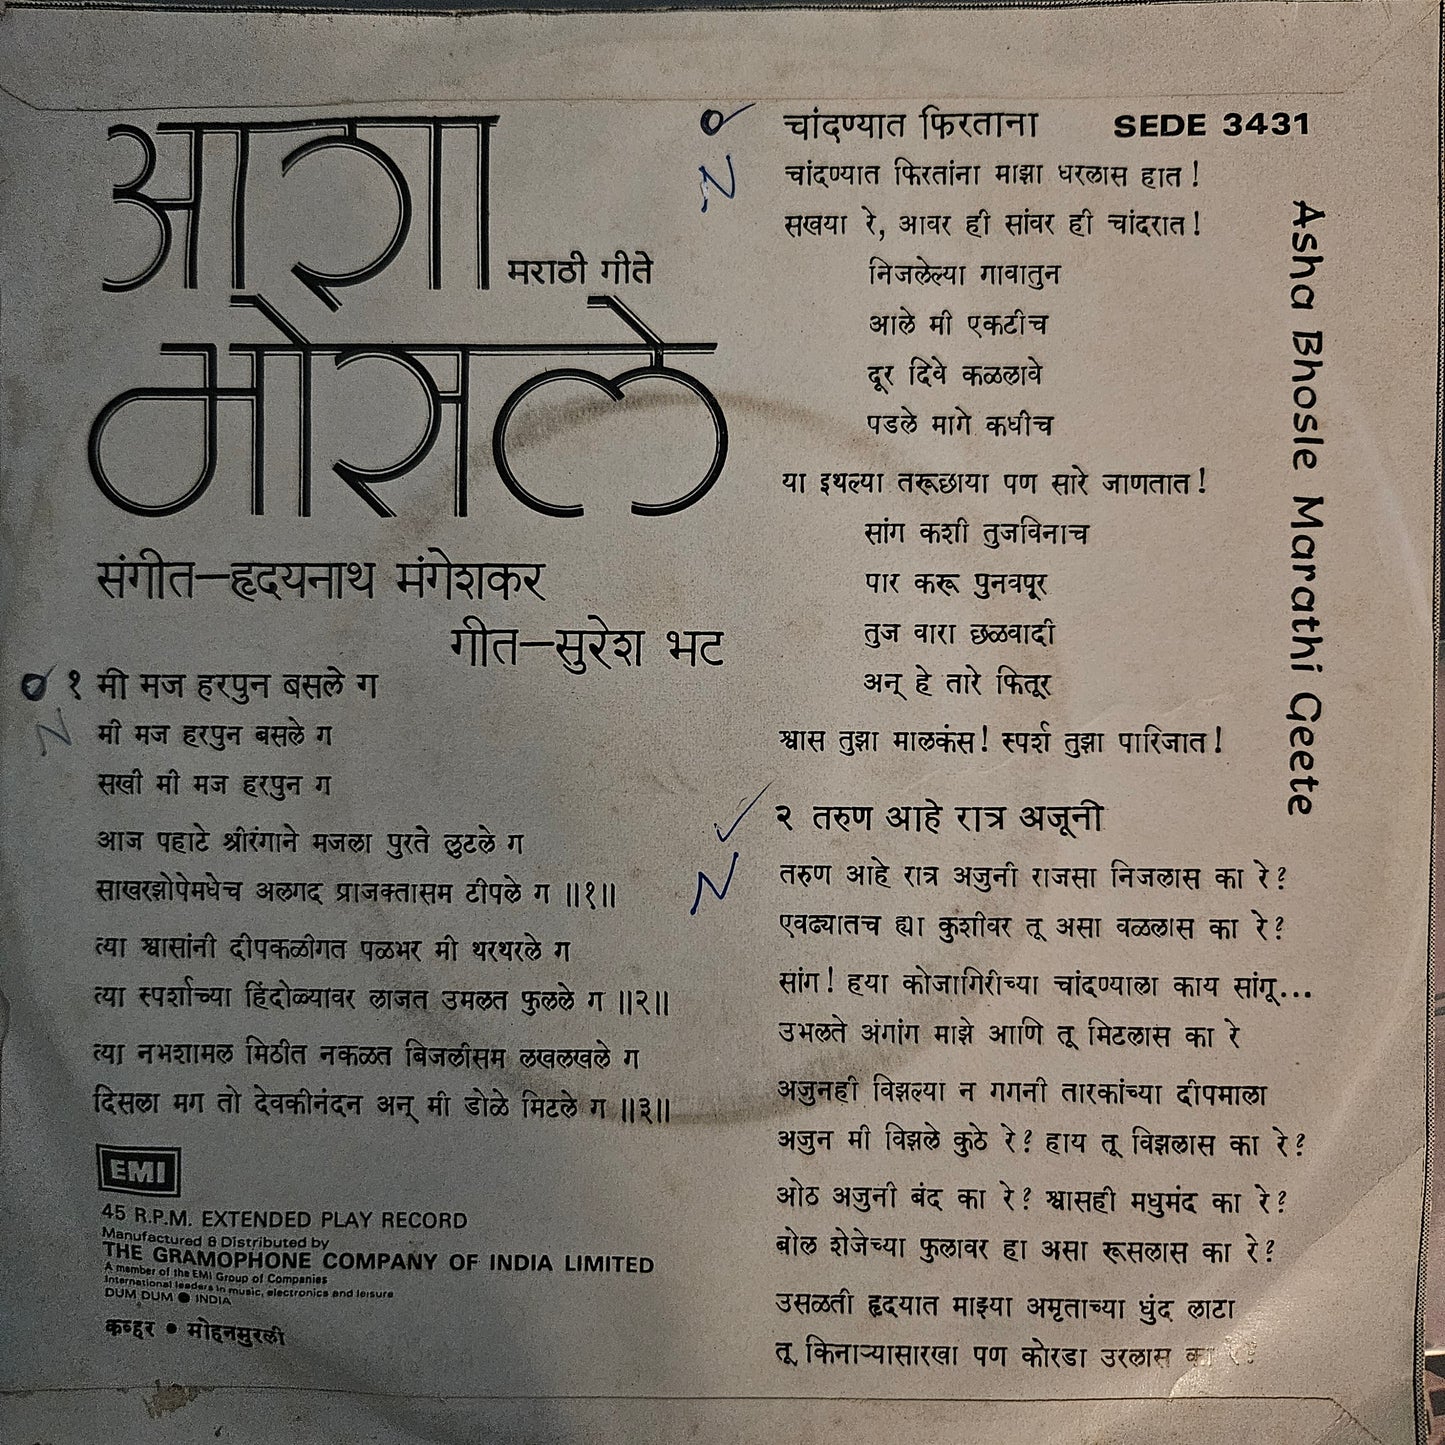 आशा
मराठी गीते
भोसले
संगीत—हृदयनाथ मंगेशकर
गीत—सुरेश भट
१ मी मज हरपुन बसले ग
मी मज हरपुन बसले ग
सखी मी मज हरपुन ग
आज पहाटे श्रीरंगाने मजला पुरते लुटले ग
साखरझोपेमधेच अलगद प्राजक्तासम टीपले ग ॥१॥
त्या श्वासांनी दीपकळीगत पळभर मी थरथरले ग
त्या स्पर्शाच्या हिंदोळ्यावर लाजत उमलत फुलले ग ॥२॥
त्या नभशामल मिठीत नकळत बिजलीसम लखलखले ग
दिसला मग तो देवकीनंदन अन् मी डोळे मिटले ग ॥३॥
EMI
45 R.P.M. EXTENDED PLAY RECORD
Manufactured & Distributed by
THE GRAMOPHONE COMPANY OF INDIA LIMITED
A member of the EMI Group of Companies
International leaders in music, electronics and leisure
DUM DUM ● INDIA
कव्हर • मोहनमुरली
चांदण्यात फिरताना
SEDE 3431
चांदण्यात फिरतांना माझा धरलास हात!
सखया रे, आवर ही सांवर ही चांदरात!
निजलेल्या गावातुन
आले मी एकटीच
दूर दिवे कळलावे
पडले मागे कधीच
या इथल्या तरूछाया पण सारे जाणतात!
सांग कशी तुजविनाच
पार करू पुनवपूर
तुज वारा छळवादी
अन् हे तारे फितूर
श्वास तुझा मालकंस! स्पर्श तुझा पारिजात!
२ तरुण आहे रात्र अजूनी
तरुण आहे रात्र अजुनी राजसा निजलास का रे?
एवढ्यातच ह्या कुशीवर तू असा वळलास का रे?
सांग! हया कोजागिरीच्या चांदण्याला काय सांगू...
उभलते अंगांग माझे आणि तू मिटलास का रे
अजुनही विझल्या न गगनी तारकांच्या दीपमाला
अजुन मी विझले कुठे रे? हाय तू विझलास का रे?
ओठ अजुनी बंद का रे? श्वासही मधुमंद का रे?
बोल शेजेच्या फुलावर हा असा रूसलास का रे?
उसळती हृदयात माझ्या अमृताच्या धुंद लाटा
तू किनाऱ्यासारखा पण कोरडा उरलास का रे?
Asha Bhosle Marathi Geete
N
N
N